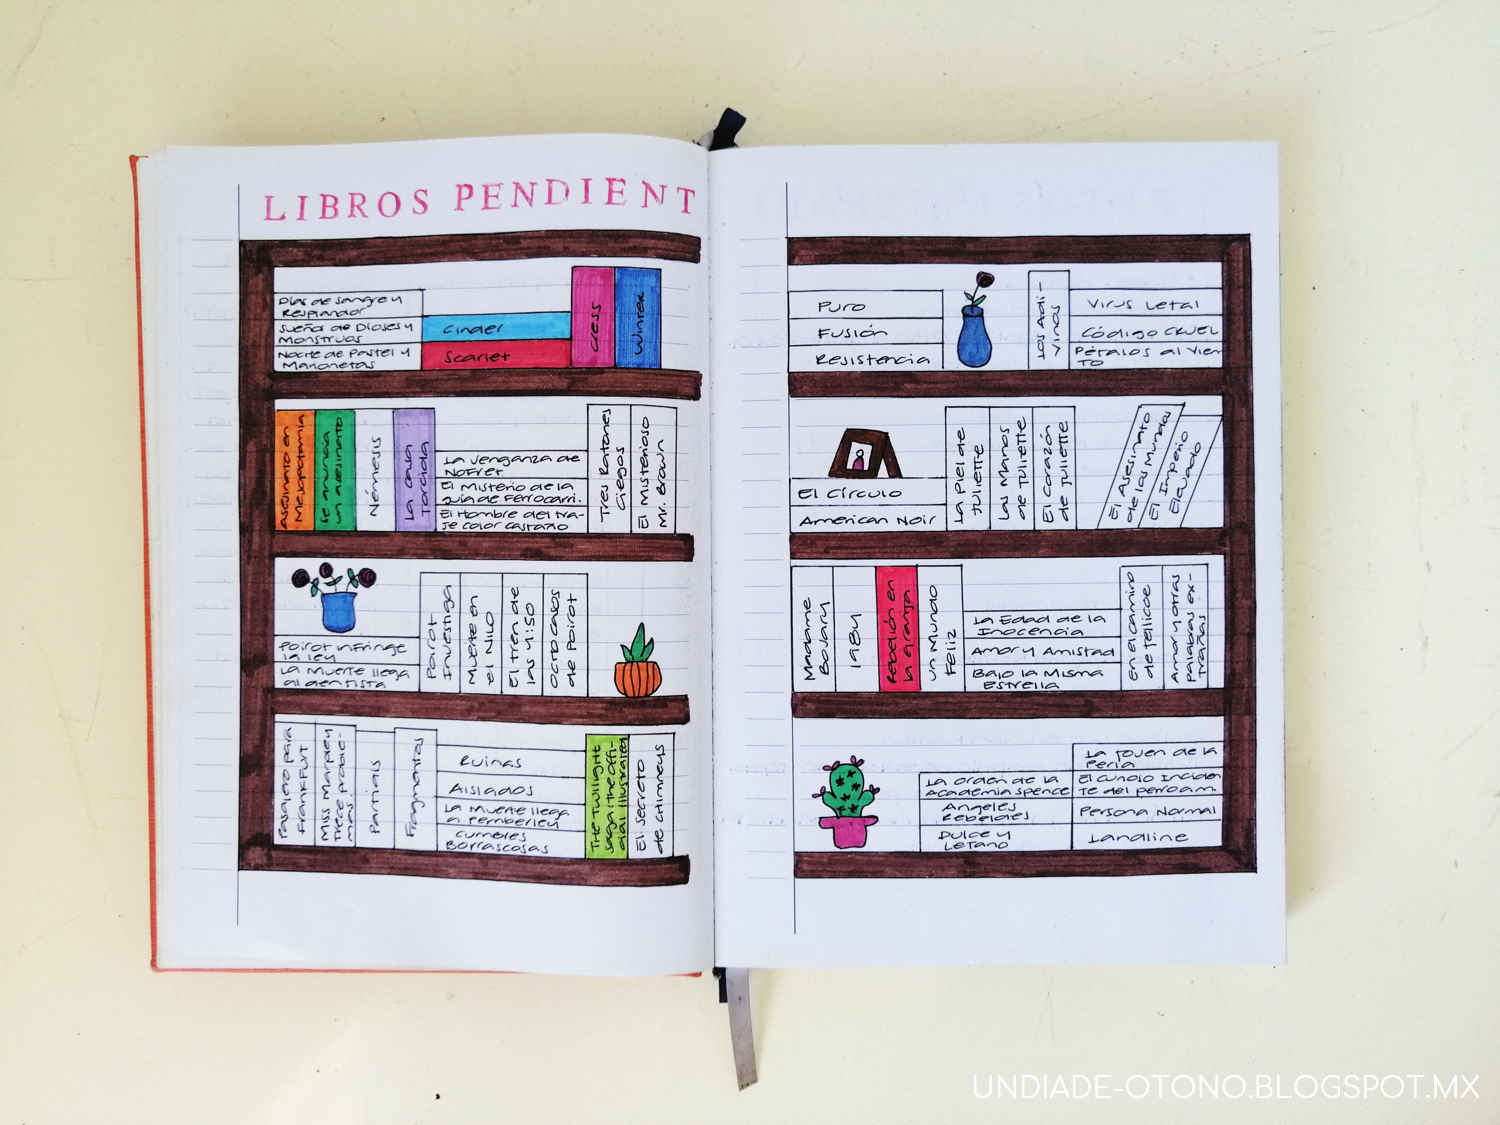 LIBROS PENDIENT
Días de sangre y
Resplandor
Sueños de Dioses y
Monstruos
Noche de Pastel y
Marionetas
Cinder
Scarlet
Cress
Winter
Asesinato en
Mesopotamia
Se anuncia
un asesinato
Némesis
La casa
Torcida
La venganza de
Nofret
El Misterio de la
guía de Ferrocarri.
El Hombre del tra-
je color castaño
Tres Ratones
Ciegos
El Misterioso
Mr. Brown
Poirot infringe
la ley
La Muerte llega
al dentista
Poirot
Investiga
Muerte en
el Nilo
El tren de
las 4:50
Octo casos
de Poirot
Pasajero para
Frankfurt
Miss Marple y
trece proble-
mas
Partials
Fragmentos
Ruinas
Aislados
La Muerte llega
a Pemberley
Cumbres
Borrascosas
The Twilight
saga: the offi-
cial illustrated
El Secreto
de Chimneys
Puro
Fusión
Resistencia
Los Adi-
vinos
Virus Letal
Código CRUEL
Pétalos al Vien
to
El Círculo
American Noir
La Piel de
Juliette
Las Manos
de Juliette
El Corazón
de Juliette
El Asesinato
de los Mundos
El Imperio
Elevado
Madame
Bovary
1984
Rebelión en
la Granja
Un Mundo
Feliz
La Edad de la
Inocencia
Amor y Amistad
Bajo la Misma
Estrella
En el camino
de Jellicoe
Amor y otras
palabras ex-
trañas
La orden de la
Academia Spence
Angeles
Rebeldes
Dulce y
Letano
La Joven de la
Perla
El curioso Inciden
te del perro a m.
Persona Normal
Landline
UNDIADE-OTONO.BLOGSPOT.MX